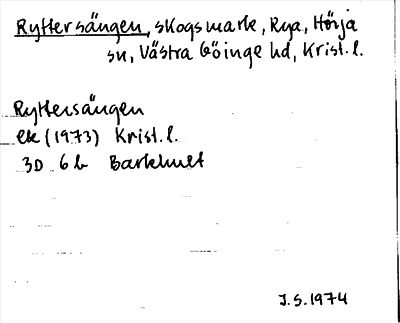 Ryttersängen, skogsmark, Rya, Hörja
sn, Västra Göinge hd, Krist. l.
Ryttersängen
ek (1973) Krist. l.
3D 6b Barkhult
J.S. 1974